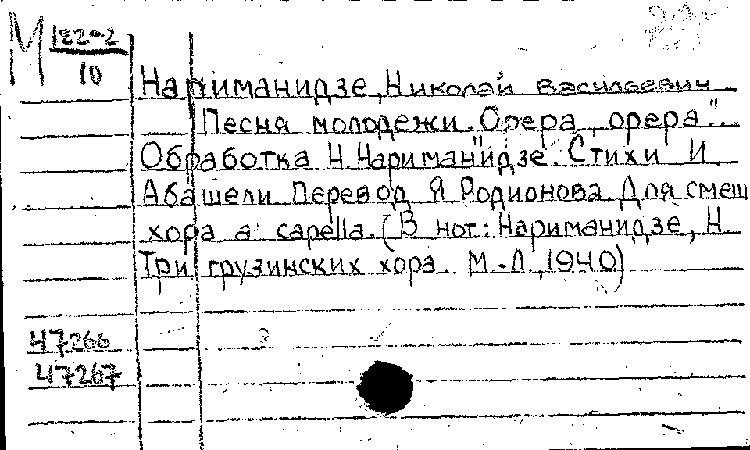 М 122-2
10
Нариманидзе, Николай Васильевич
Песня молодежи. „Орера, орера".
Обработка Н. Нариманидзе. Стихи И.
Абашели Перевод Я Родионова. Для смеш
хора a capella. (В нот.: Нариманидзе, Н.
Три грузинских хора. М.-Л., 1940)
47266
47267